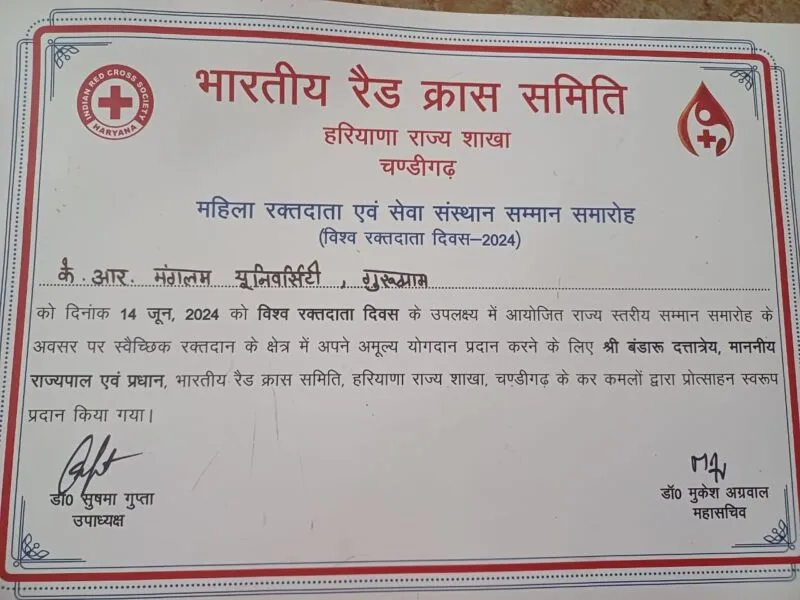 INDIAN RED CROSS SOCIETY
HARYANA
भारतीय रैड क्रास समिति
हरियाणा राज्य शाखा
चण्डीगढ़
महिला रक्तदाता एवं सेवा संस्थान सम्मान समारोह
(विश्व रक्तदाता दिवस–2024)
के. आर. मंगलम यूनिवर्सिटी , गुरूग्राम
को दिनांक 14 जून, 2024 को विश्व रक्तदाता दिवस के उपलक्ष्य में आयोजित राज्य स्तरीय सम्मान समारोह के
अवसर पर स्वैच्छिक रक्तदान के क्षेत्र में अपने अमूल्य योगदान प्रदान करने के लिए श्री बंडारू दत्तात्रेय, माननीय
राज्यपाल एवं प्रधान, भारतीय रैड क्रास समिति, हरियाणा राज्य शाखा, चण्डीगढ़ के कर कमलों द्वारा प्रोत्साहन स्वरूप
प्रदान किया गया।
डॉ0 सुषमा गुप्ता
उपाध्यक्ष
डॉ0 मुकेश अग्रवाल
महासचिव